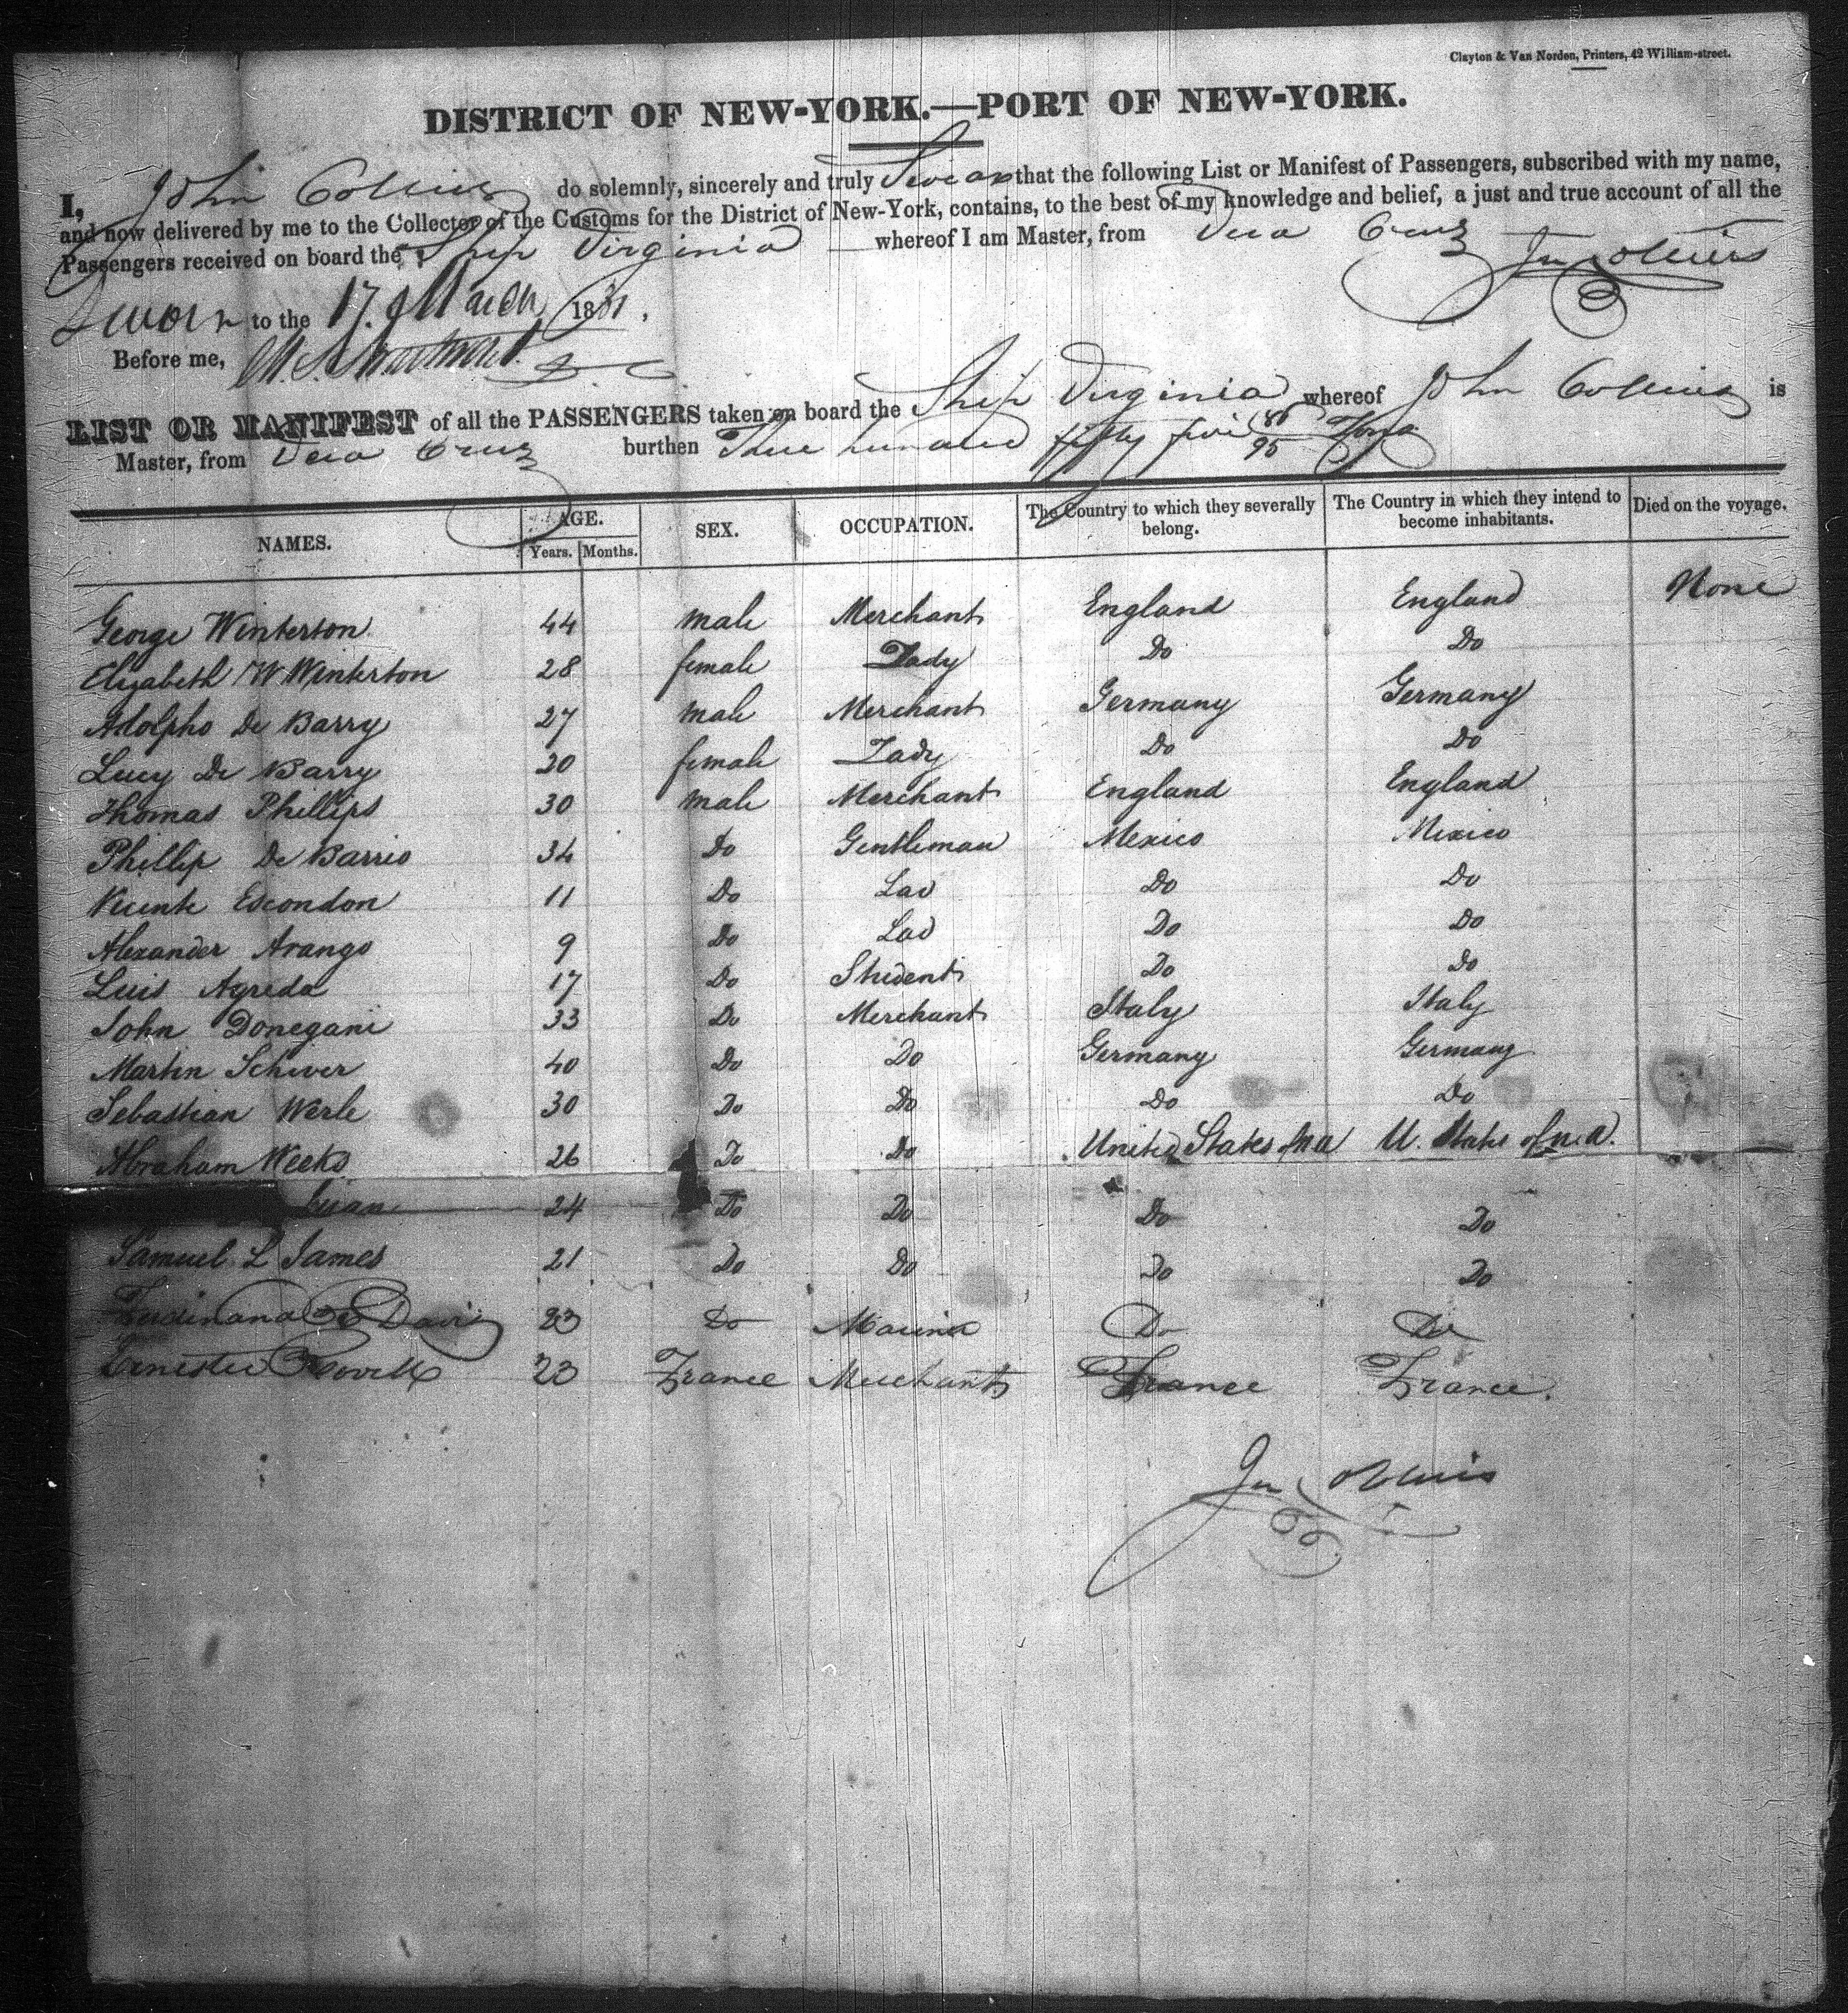 Clayton & Van Norden, Printers, 42 William-street.
DISTRICT OF NEW-YORK.—PORT OF NEW-YORK.
I, John Collins do solemnly, sincerely and truly Swear that the following List or Manifest of Passengers, subscribed with my name,
and now delivered by me to the Collector of the Customs for the District of New-York, contains, to the best of my knowledge and belief, a just and true account of all the
Passengers received on board the Ship Virginia whereof I am Master, from Vera Cruz
Jn Collins
Sworn to the 17. March 1831.
Before me,
LIST OR MANIFEST of all the PASSENGERS taken on board the Ship Virginia whereof John Collins is
Master, from Vera Cruz burthen Three hundred fifty five 86/95 Tons
NAMES. AGE. Years. Months. SEX. OCCUPATION. The Country to which they severally belong. The Country in which they intend to become inhabitants. Died on the voyage.
George Winterton 44 male Merchant England England None
Elizabeth W Winterton 28 female Lady Do Do
Adolpho De Barry 27 male Merchant Germany Germany
Lucy De Barry 20 female Lady Do Do
Thomas Phillips 30 male Merchant England England
Phillip De Barrio 34 Do Gentleman Mexico Mexico
Vicente Escondon 11 Do Lad Do Do
Alexander Arango 9 Do Lad Do Do
Luis Agreda 17 Do Student Do Do
John Donegani 33 Do Merchant Italy Italy
Martin Schiver 40 Do Do Germany Germany
Sebastian Werle 30 Do Do Do Do
Abraham Weeks 26 Do Do United States of N A U. States of N. A.
24 Do Do Do Do
Samuel L James 21 Do Do Do Do
Ferdinand Davis 23 Do Mariner Do Do
23 France Merchant France France.
Jn Collins